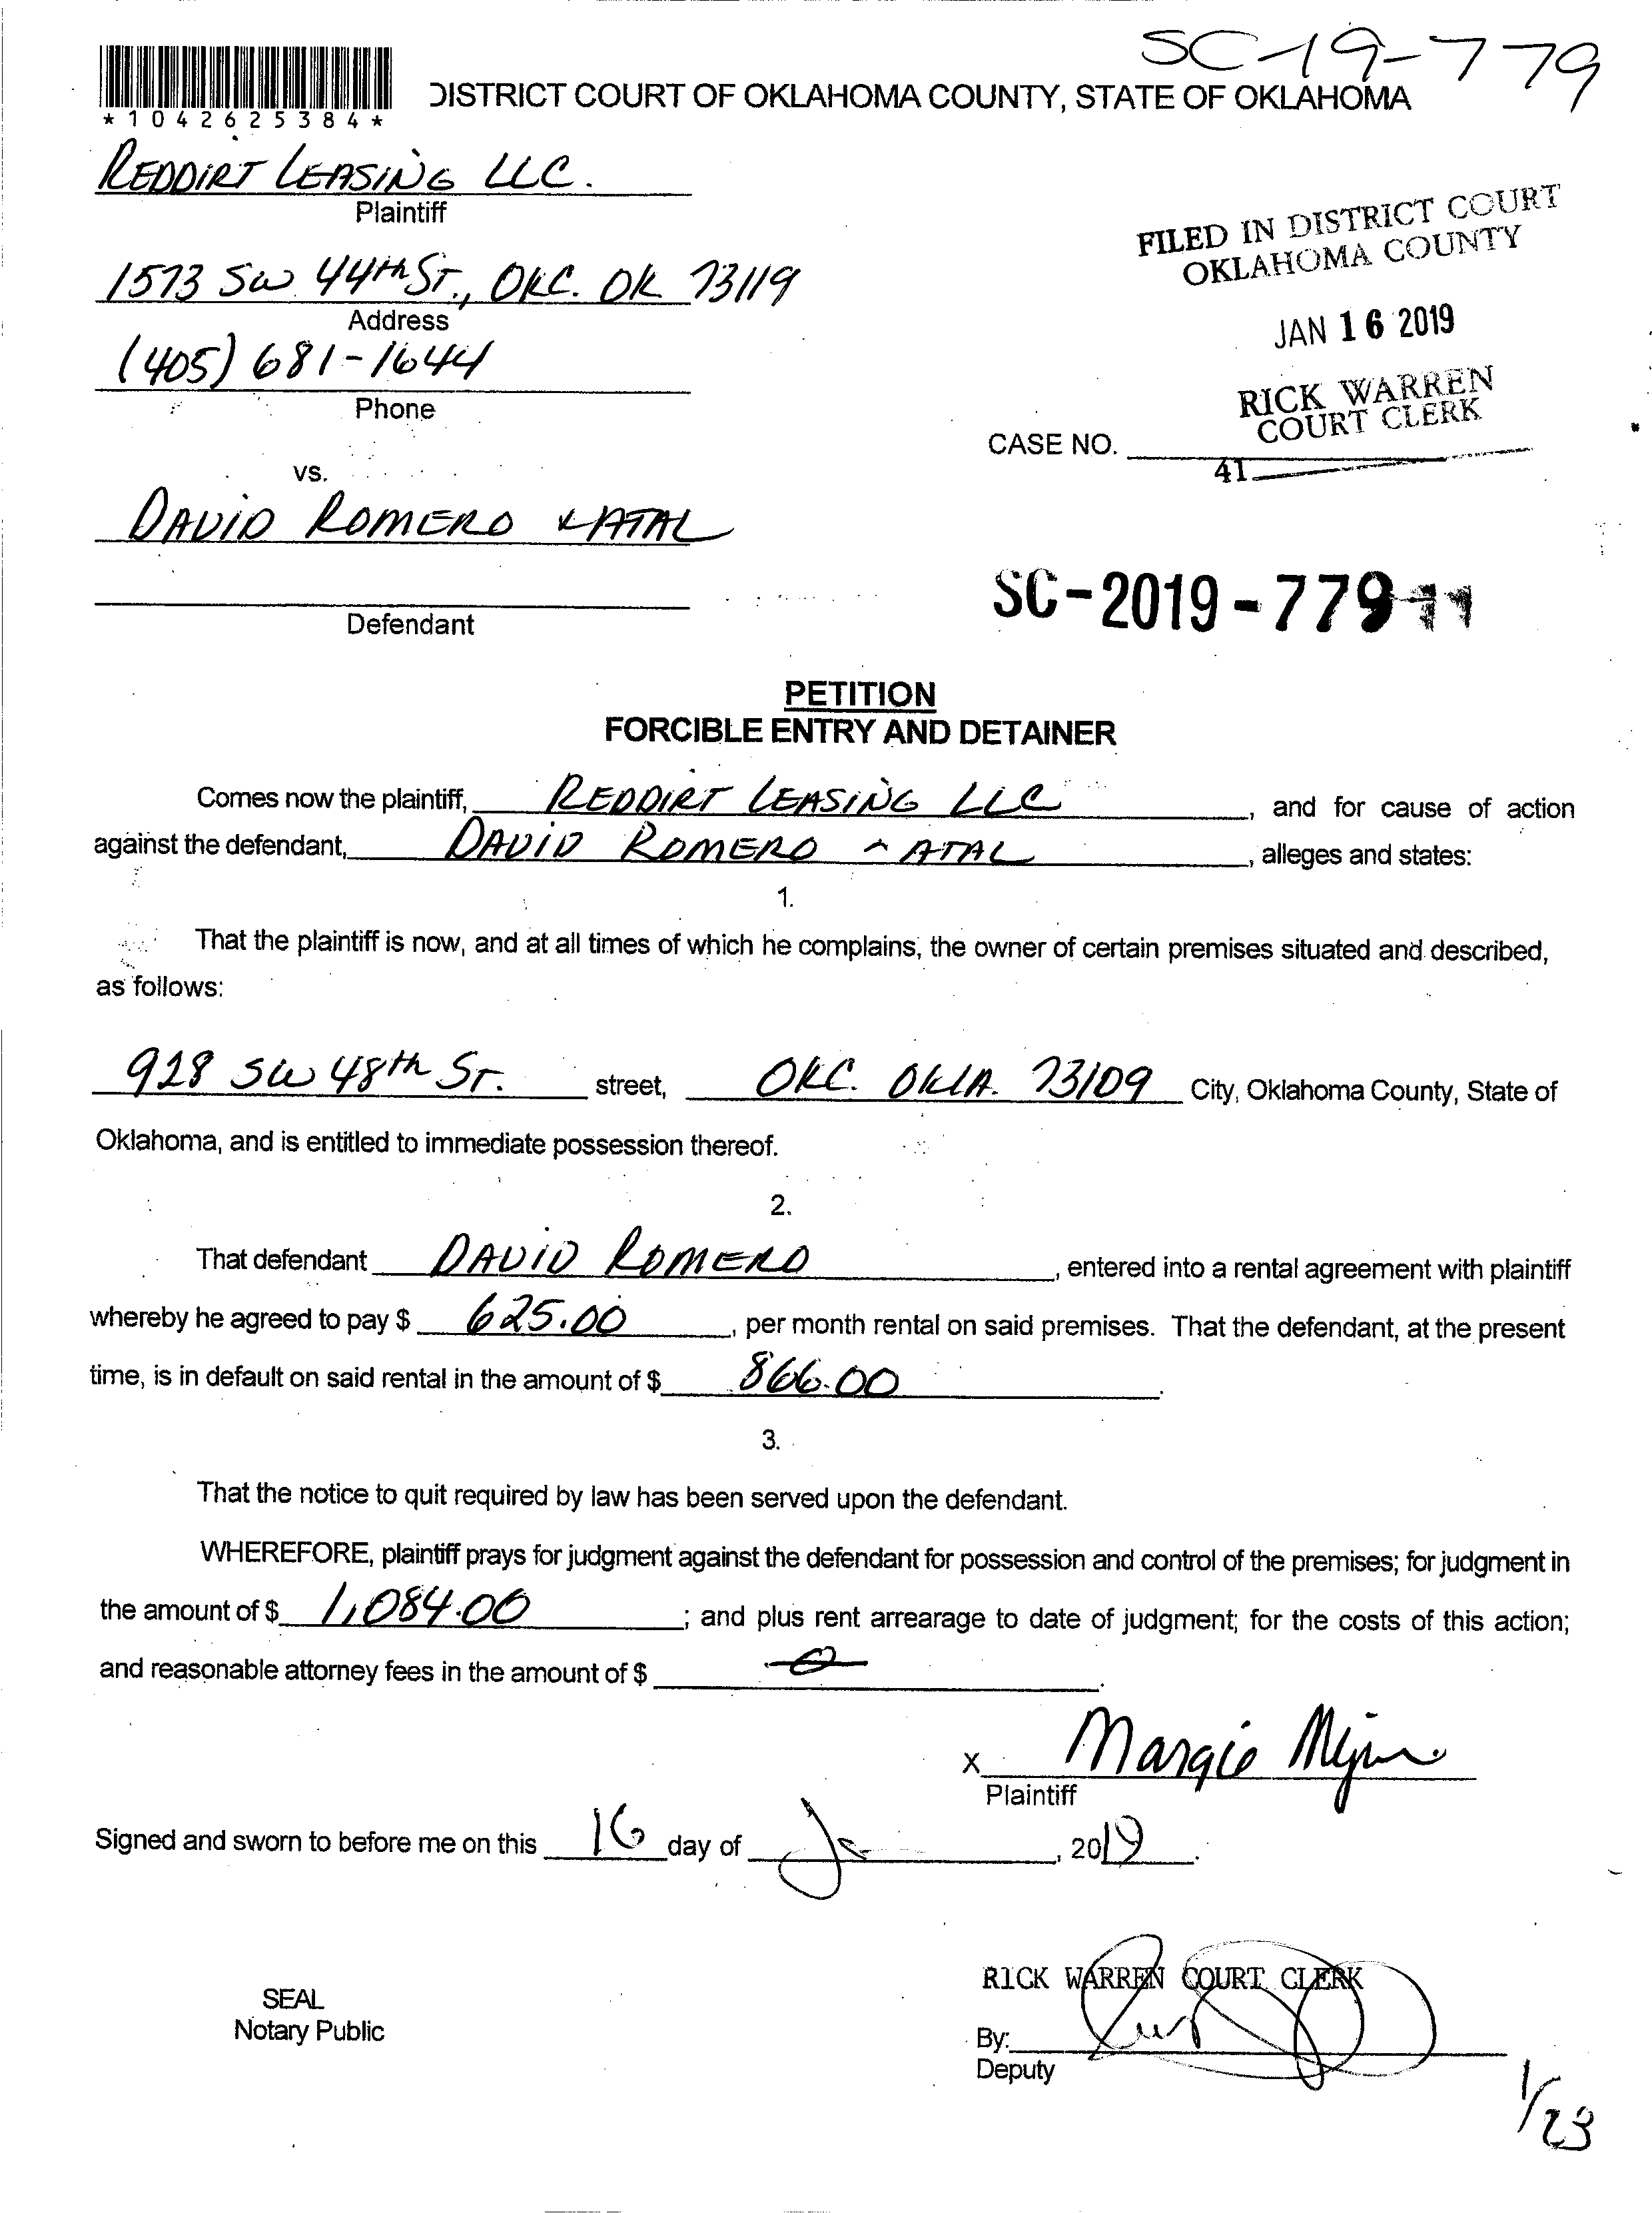 SC-19-779
*1042625384*
DISTRICT COURT OF OKLAHOMA COUNTY, STATE OF OKLAHOMA
REDDIRT LEASING LLC.
Plaintiff
FILED IN DISTRICT COURT
OKLAHOMA COUNTY
1573 SW 44th ST., OKC. OK 73119
Address
JAN 16 2019
(405) 681-1644
Phone
RICK WARREN
COURT CLERK
CASE NO.
41
vs.
DAVID ROMERO & ATAL
Defendant
SC-2019-779
PETITION
FORCIBLE ENTRY AND DETAINER
Comes now the plaintiff, REDDIRT LEASING LLC, and for cause of action
against the defendant, DAVID ROMERO ATAL, alleges and states:
1.
That the plaintiff is now, and at all times of which he complains, the owner of certain premises situated and described,
as follows:
928 SW 48th ST. street, OKC. OKLA. 73109 City, Oklahoma County, State of
Oklahoma, and is entitled to immediate possession thereof.
2.
That defendant DAVID ROMERO, entered into a rental agreement with plaintiff
whereby he agreed to pay $ 625.00, per month rental on said premises. That the defendant, at the present
time, is in default on said rental in the amount of $ 866.00.
3.
That the notice to quit required by law has been served upon the defendant.
WHEREFORE, plaintiff prays for judgment against the defendant for possession and control of the premises; for judgment in
the amount of $ 1,084.00; and plus rent arrearage to date of judgment; for the costs of this action;
and reasonable attorney fees in the amount of $ 0.
X Margie
Plaintiff
Signed and sworn to before me on this 16 day of Ja, 2019.
RICK WARREN COURT CLERK
SEAL
Notary Public
By:
Deputy
1/23